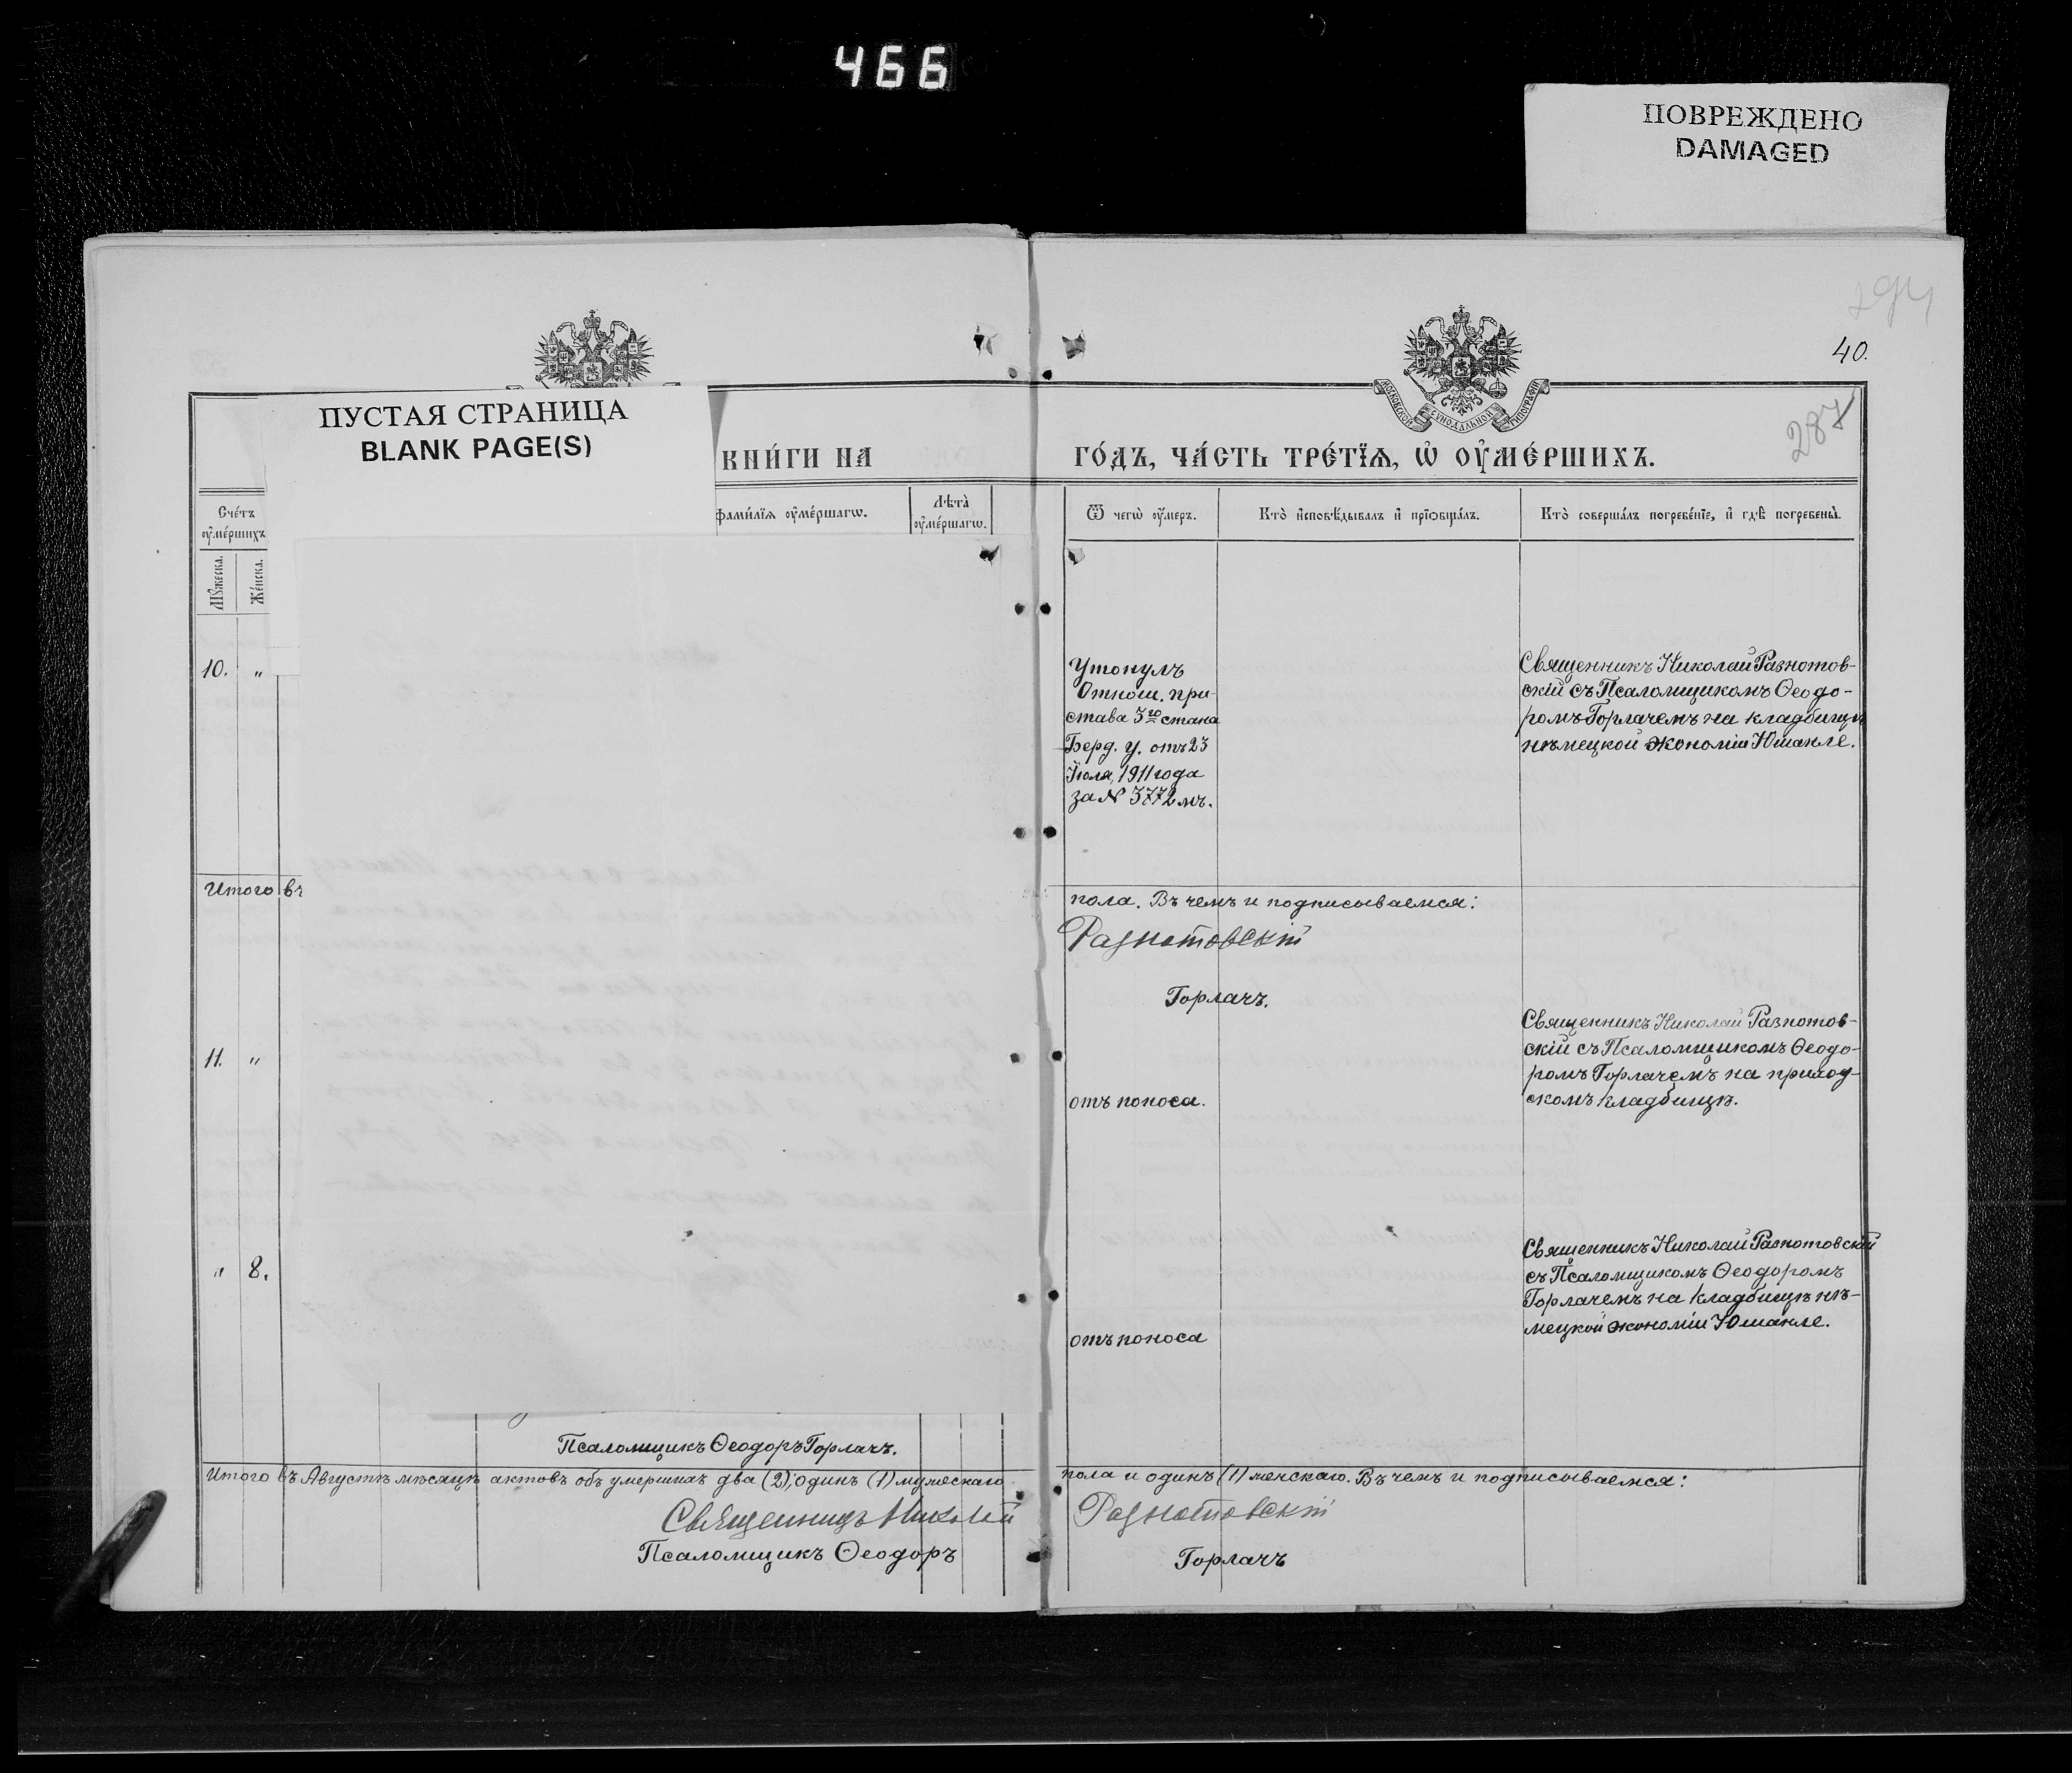 466
ПОВРЕЖДЕНО
DAMAGED
40.
287
МОСКОВСКОЙ СѴНОДАЛЬНОЙ ТИПОГРАФІИ
ПУСТАЯ СТРАНИЦА
BLANK PAGE(S)
КНИ́ГИ НА
ГО́ДЪ, ЧА́СТЬ ТРЕ́ТЇѦ, Ѽ ОУ҆МЕ́РШИХЪ.
Сче́тъ
оу҆ме́ршихъ
Мꙋ́жеска.
Же́нска.
фами́лїѧ оу҆ме́ршагѡ.
Лѣта̀
оу҆ме́ршагѡ.
Ѿ чегѡ̀ оу҆́меръ.
Кто̀ и҆сповѣ́дывалъ и҆ прїѡбща́лъ.
Кто̀ соверша́лъ погребе́нїе, и҆ гдѣ̀ погребены̀.
10. „
Утонулъ
Отнош. при-
става 3го стана
Берд. у. отъ 23
Іюля, 1911 года
за № 3772 мъ.
Священникъ Николай Разнотов-
скій съ Псаломщикомъ Ѳеодо-
ромъ Горлачемъ на кладбищѣ
нѣмецкой экономіи Юшанле.
Итого въ
пола. Въ чемъ и подписываемся:
Разнотовскій
Горлачъ.
11. „
отъ поноса.
Священникъ Николай Разнотов-
скій съ Псаломщикомъ Ѳеодо-
ромъ Горлачемъ на приход-
скомъ кладбищѣ.
„ 8.
отъ поноса
Священникъ Николай Разнотовскій
съ Псаломщикомъ Ѳеодоромъ
Горлачемъ на кладбищѣ нѣ-
мецкой экономіи Юшанле.
Псаломщикъ Ѳеодоръ Горлачъ.
Итого въ Августѣ мѣсяцѣ актовъ объ умершихъ два (2); одинъ (1) мужескаго
пола и одинъ (1) женскаго. Въ чемъ и подписываемся:
Священникъ Николай
Разнотовскій
Псаломщикъ Ѳеодоръ
Горлачъ